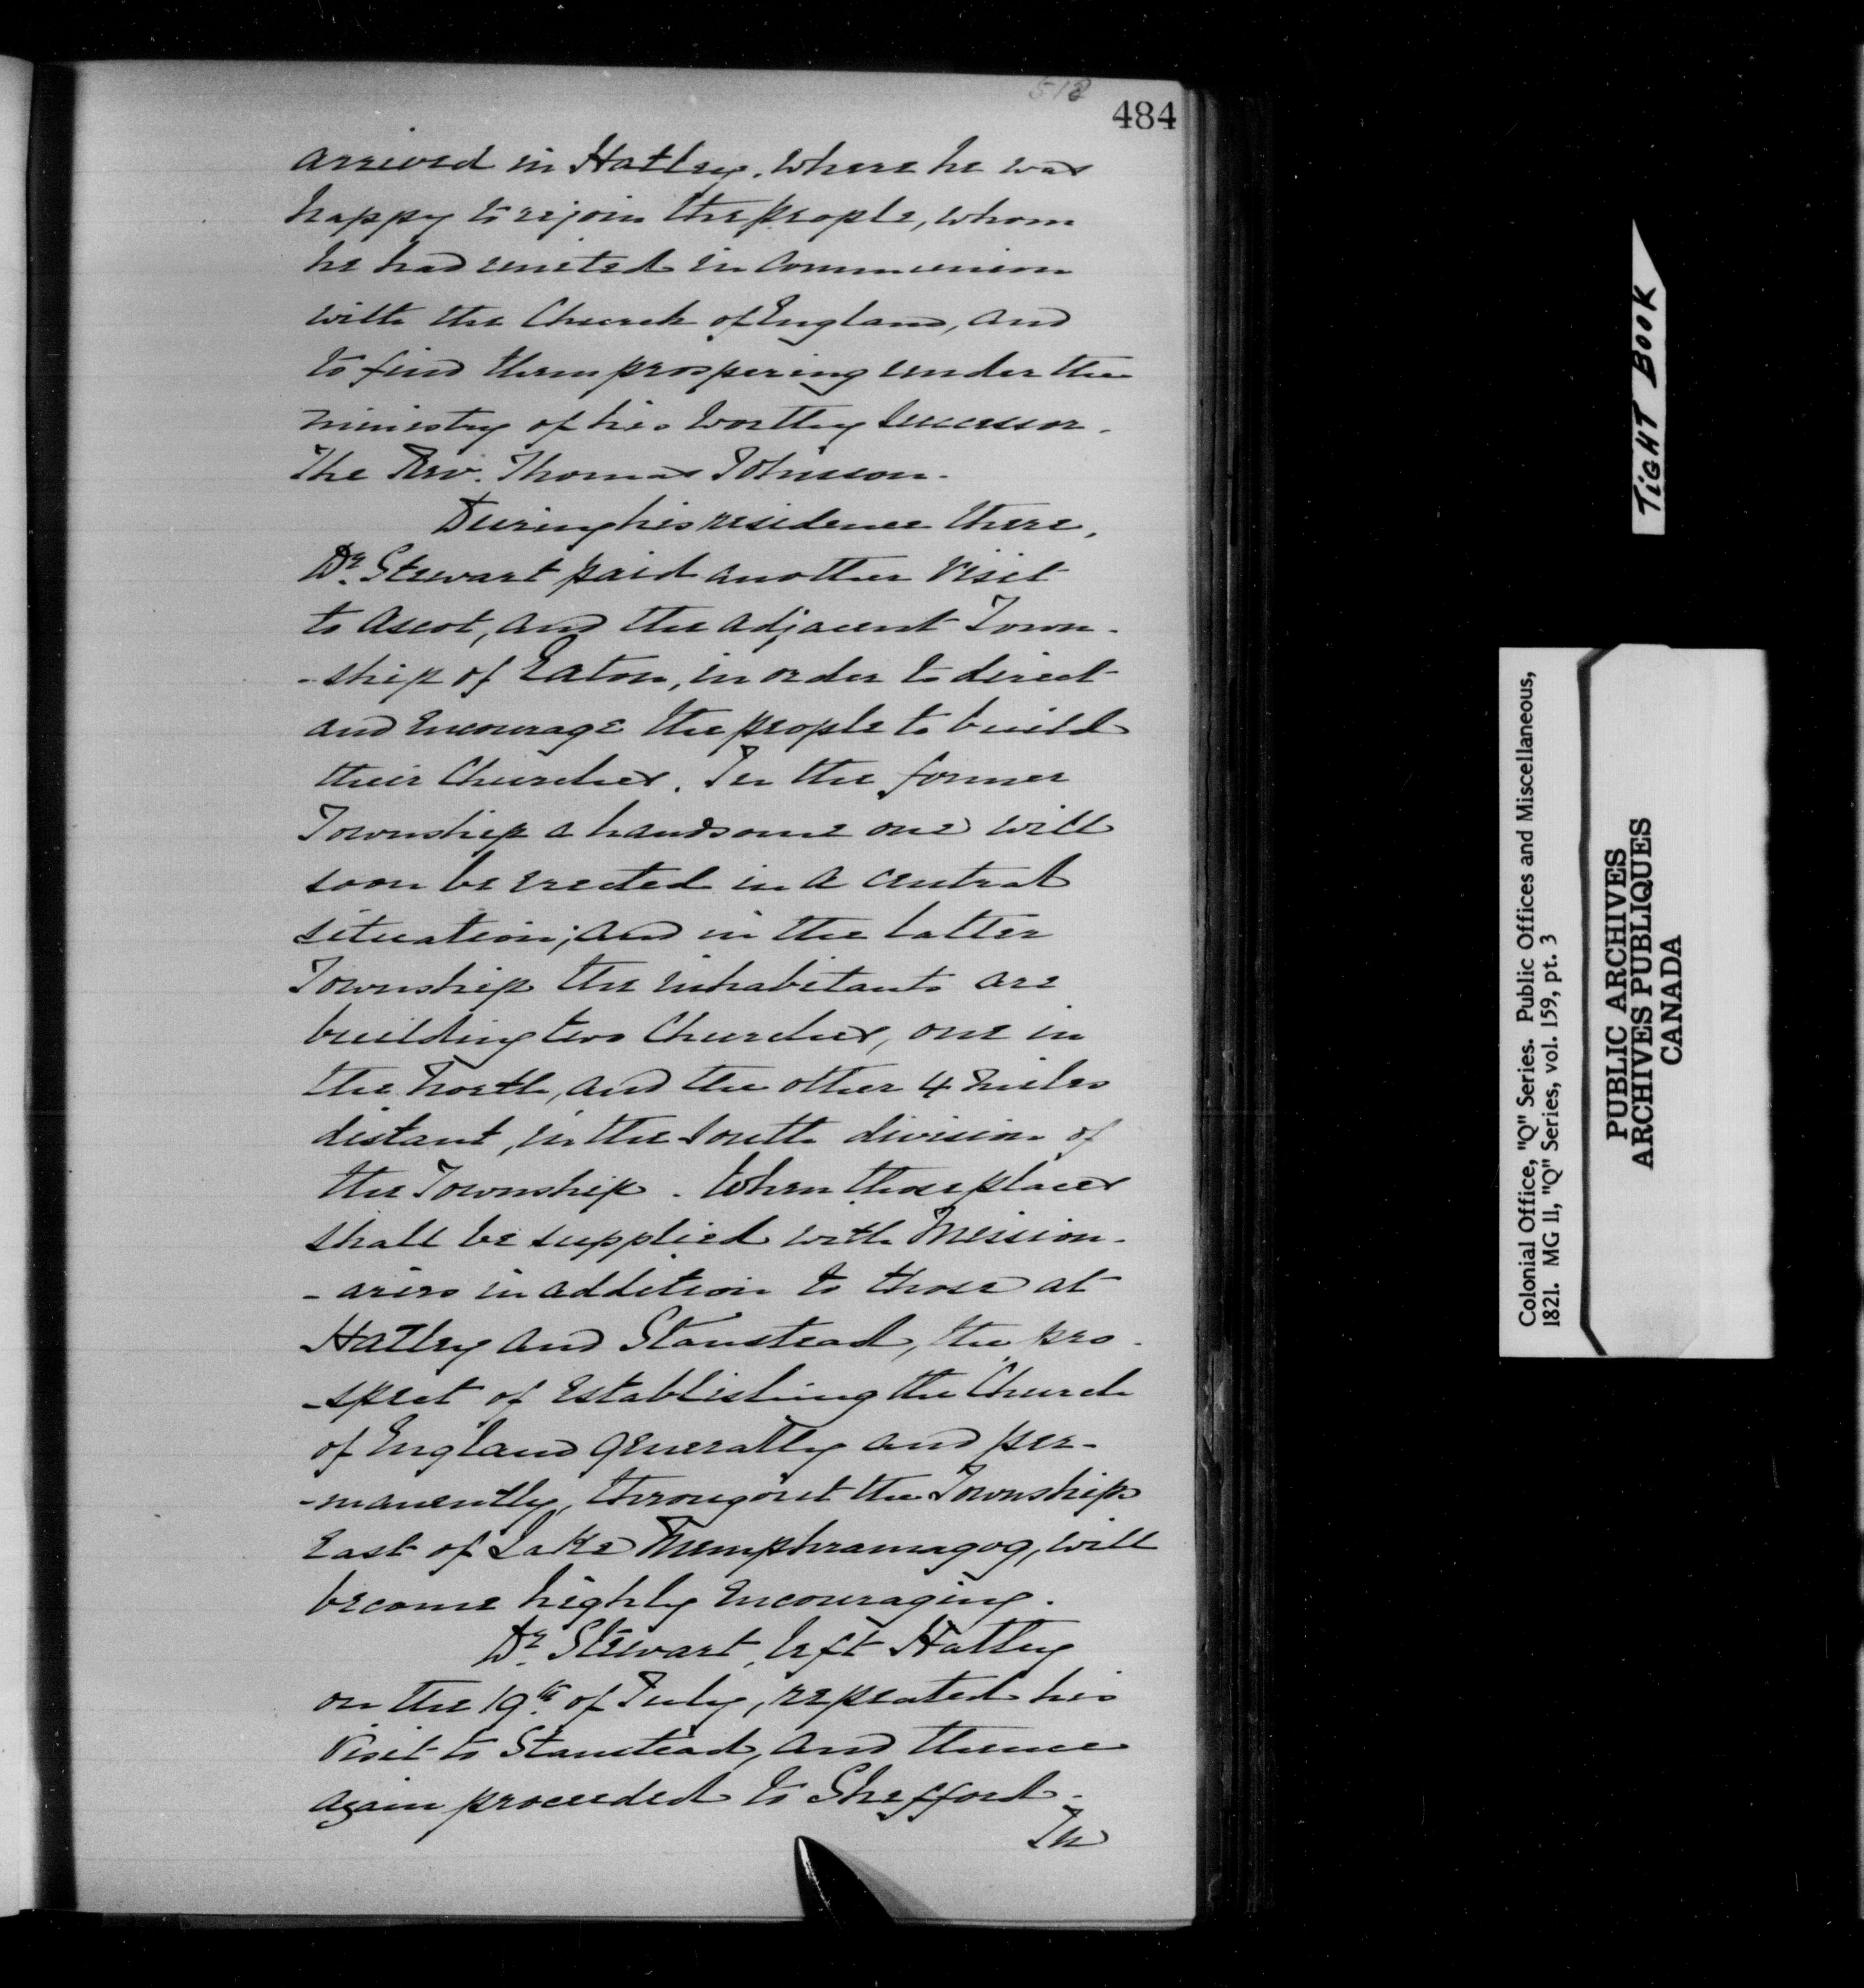 512
484
arrived in Hatley, where he was
happy to rejoin the people, whom
he had united in Communion
with the Church of England, and
to find them prospering under the
ministry of his worthy Successor.
The Rev. Thomas Johnson.
During his residence there,
Dr. Stewart paid another visit
to Ascot, and the adjacent Town-
-ship of Eaton, in order to direct
and encourage the people to build
their Churches. In the former
Township a handsome one will
soon be erected in a central
situation; and in the latter
Township the inhabitants are
building two Churches, one in
the North, and the other 4 miles
distant, in the South division of
the Township. When those places
shall be supplied with Mission-
-aries in addition to those at
Hatley and Stanstead, the pro-
-spect of establishing the Church
of England generally and per-
-manently, througout the Townships
East of Lake Memphramagog, will
become highly encouraging.
Dr. Stewart, left Hatley
on the 19th of July, repeated his
visit to Stanstead, and thence
again proceeded to Shefford.
In
TIGHT BOOK
Colonial Office, "Q" Series. Public Offices and Miscellaneous,
1821. MG 11, "Q" Series, vol. 159, pt. 3
PUBLIC ARCHIVES
ARCHIVES PUBLIQUES
CANADA